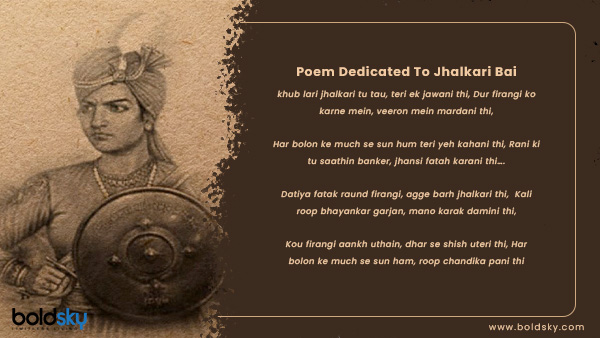 Poem Dedicated To Jhalkari Bai
khub lari jhalkari tu tau, teri ek jawani thi, Dur firangi ko
karne mein, veeron mein mardani thi,
Har bolon ke much se sun hum teri yeh kahani thi, Rani ki
tu saathin banker, jhansi fatah karani thi....
Datiya fatak raund firangi, agge barh jhalkari thi, Kali
roop bhayankar garjan, mano karak damini thi,
Kou firangi aankh uthain, dhar se shish uteri thi, Har
bolon ke much se sun ham, roop chandika pani thi
boldsky
www.boldsky.com